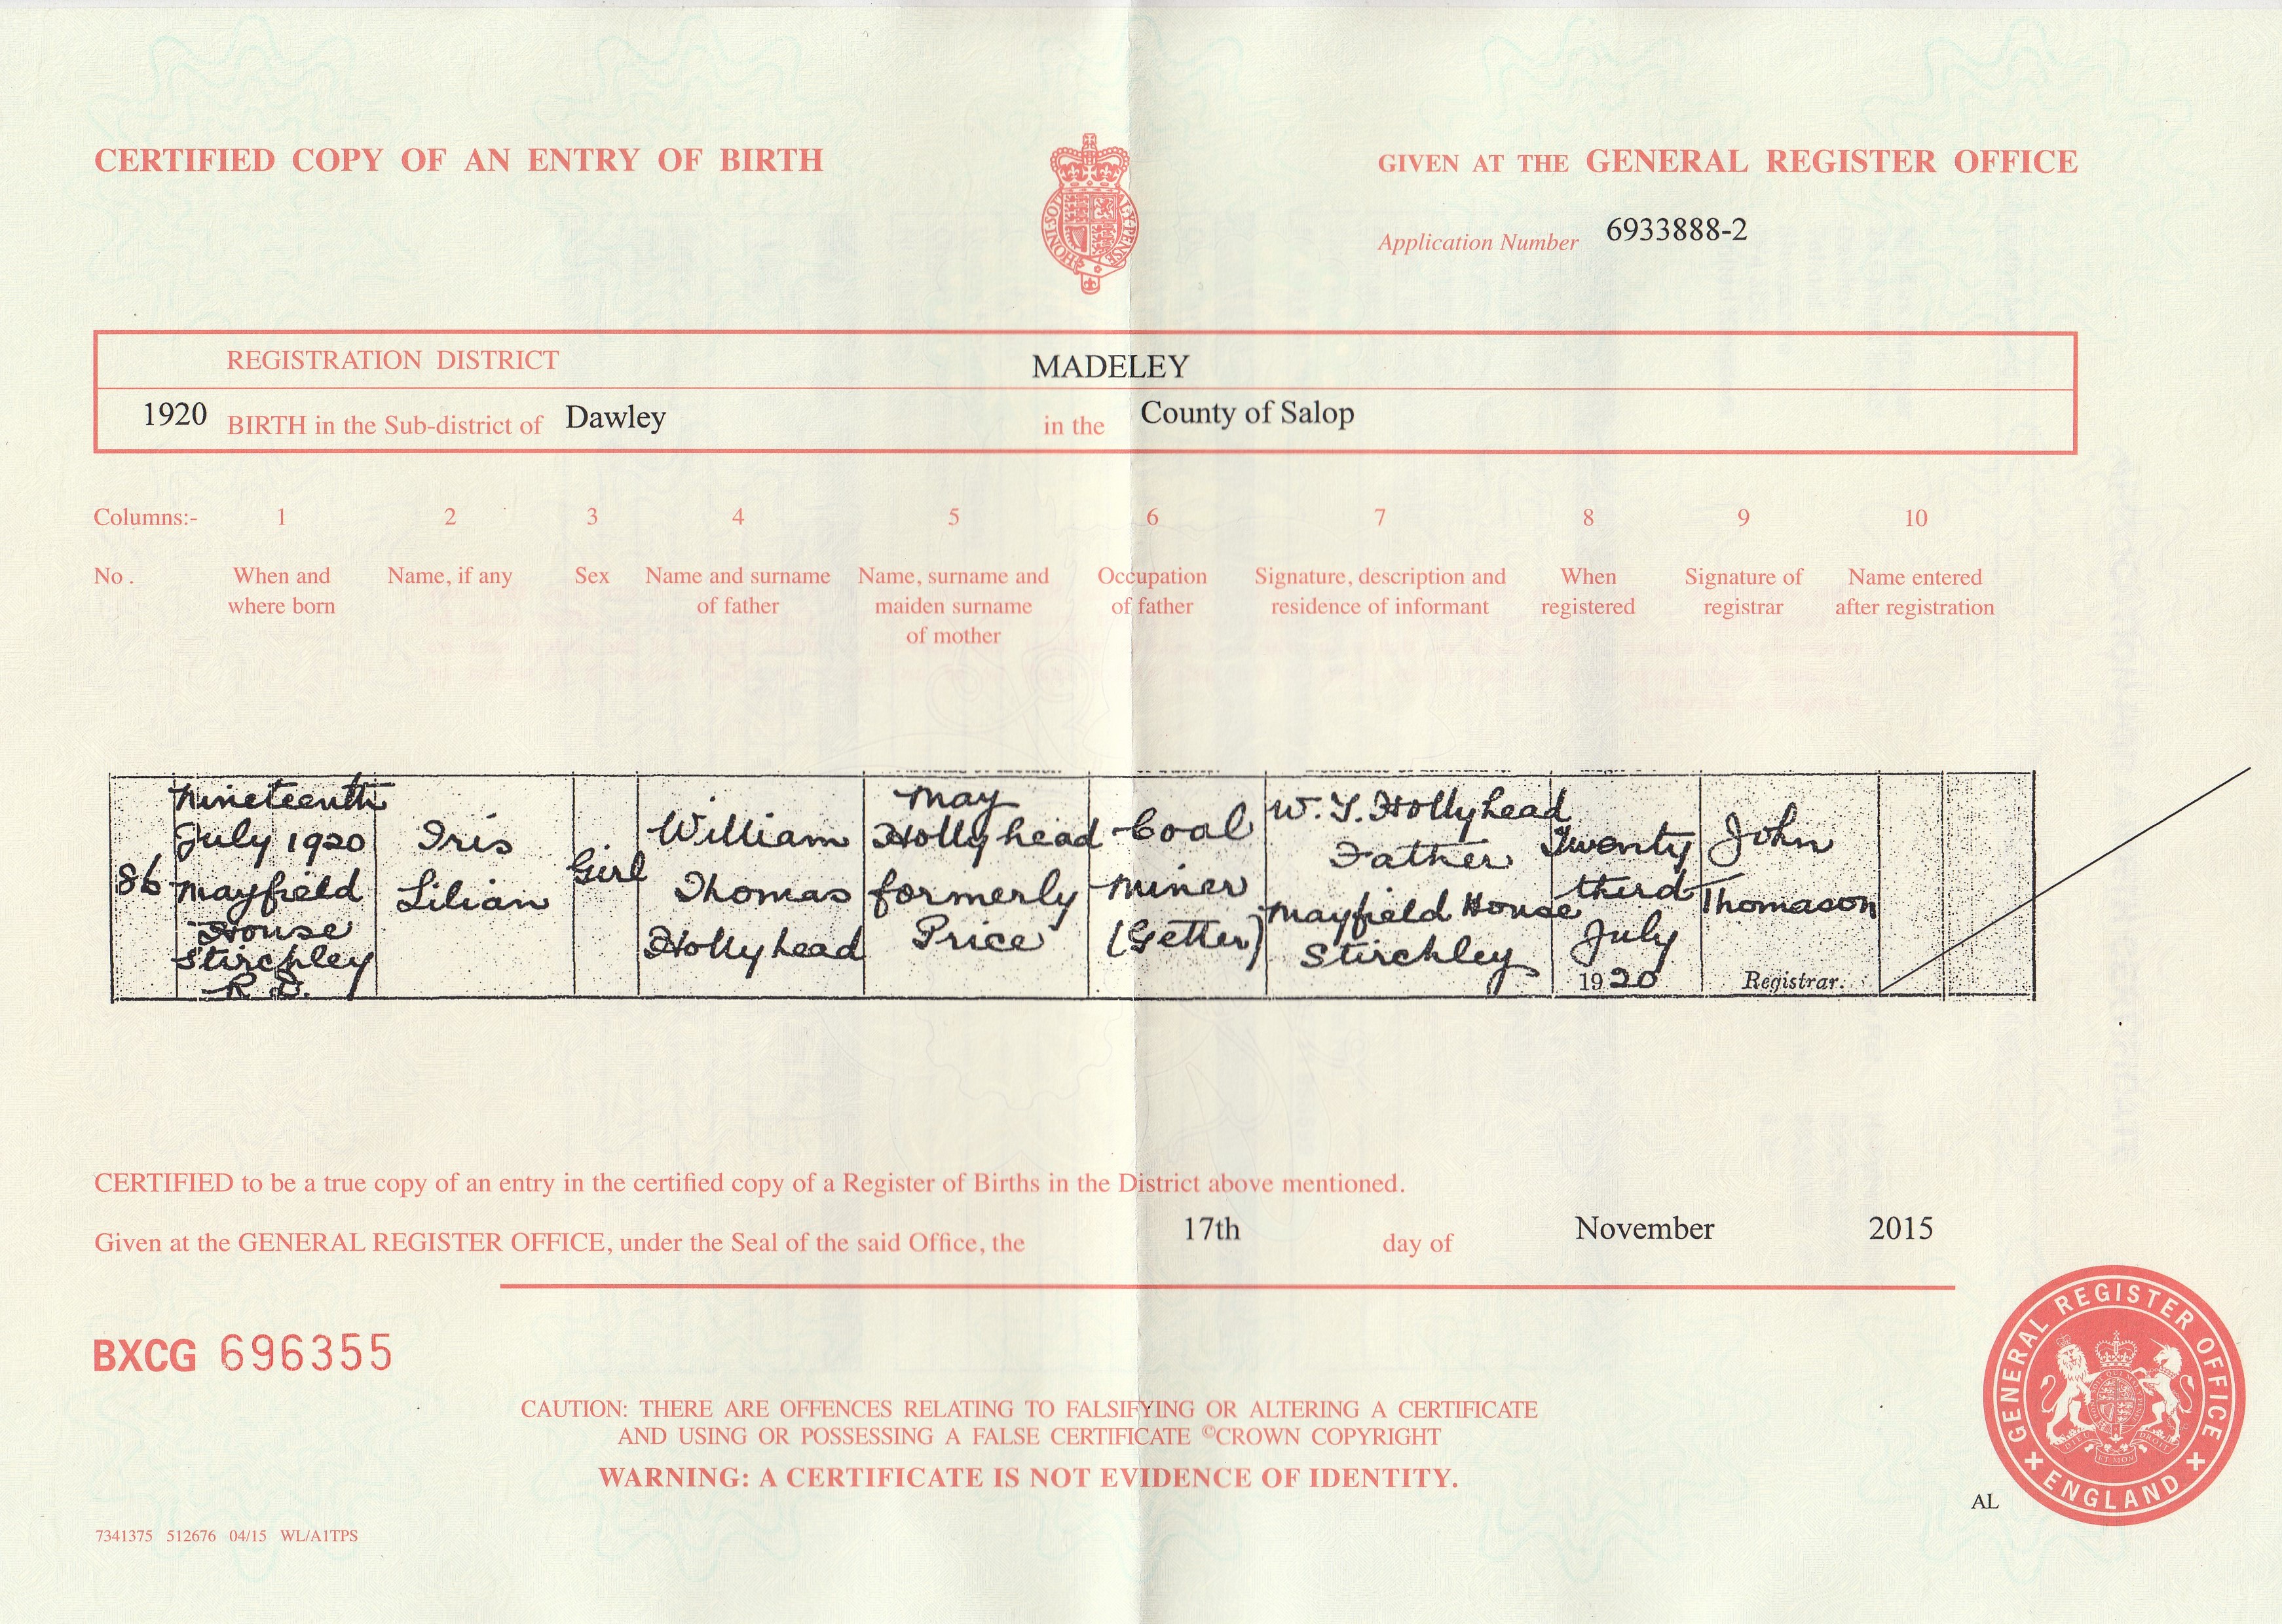 CERTIFIED COPY OF AN ENTRY OF BIRTH
GIVEN AT THE GENERAL REGISTER OFFICE
Application Number 6933888-2
REGISTRATION DISTRICT MADELEY
1920 BIRTH in the Sub-district of Dawley in the County of Salop
Columns:- 1 2 3 4 5 6 7 8 9 10
No.
When and
where born
Name, if any
Sex
Name and surname
of father
Name, surname and
maiden surname
of mother
Occupation
of father
Signature, description and
residence of informant
When
registered
Signature of
registrar
Name entered
after registration
86
Nineteenth
July 1920
Mayfield
House
Stirchley
R.D.
Iris
Lilian
Girl
William
Thomas
Hollyhead
May
Hollyhead
formerly
Price
Coal
Miner
(Getter)
W. T. Hollyhead
Father
Mayfield House
Stirchley
Twenty
third
July
1920
John
Thomason
Registrar.
CERTIFIED to be a true copy of an entry in the certified copy of a Register of Births in the District above mentioned.
Given at the GENERAL REGISTER OFFICE, under the Seal of the said Office, the 17th day of November 2015
BXCG 696355
CAUTION: THERE ARE OFFENCES RELATING TO FALSIFYING OR ALTERING A CERTIFICATE
AND USING OR POSSESSING A FALSE CERTIFICATE ©CROWN COPYRIGHT
WARNING: A CERTIFICATE IS NOT EVIDENCE OF IDENTITY.
GENERAL REGISTER OFFICE
ENGLAND
AL
7341375 512676 04/15 WL/A1TPS